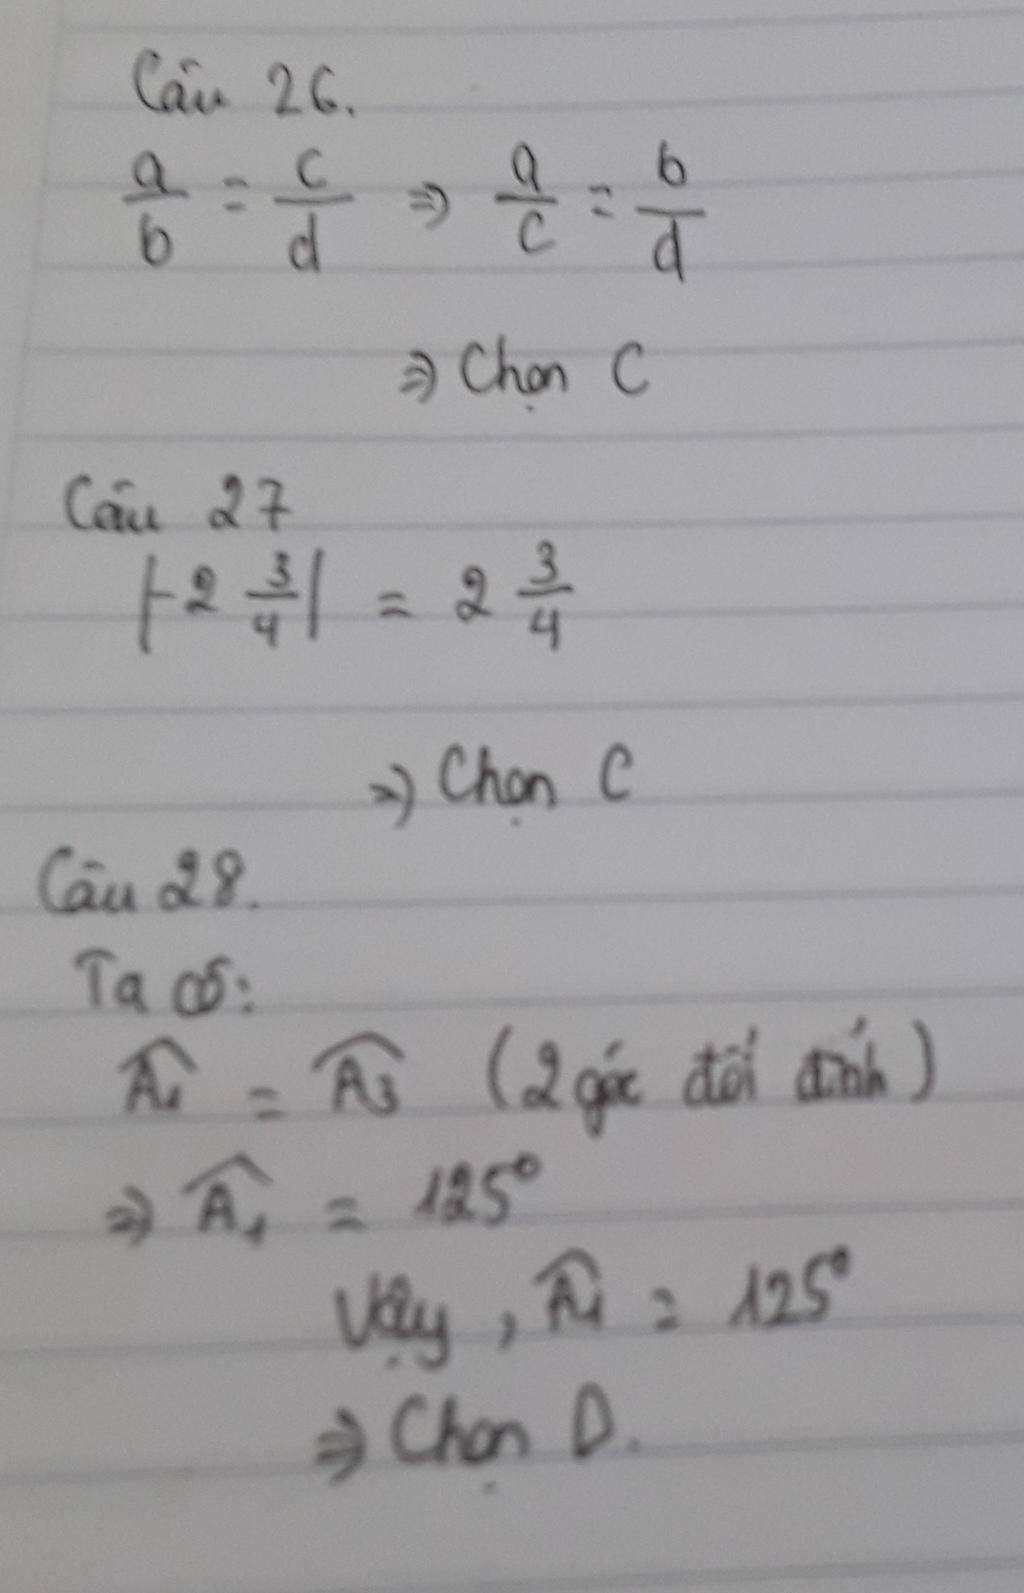 Câu 26.
a/b = c/d ⇒ a/c = b/d
⇒ Chọn C
Câu 27
|-2 3/4| = 2 3/4
⇒ Chọn C
Câu 28.
Ta có:
Â₁ = Â₃ (2 góc đối đỉnh)
⇒ Â₁ = 125°
Vậy, Â₁ = 125°
⇒ Chọn D.